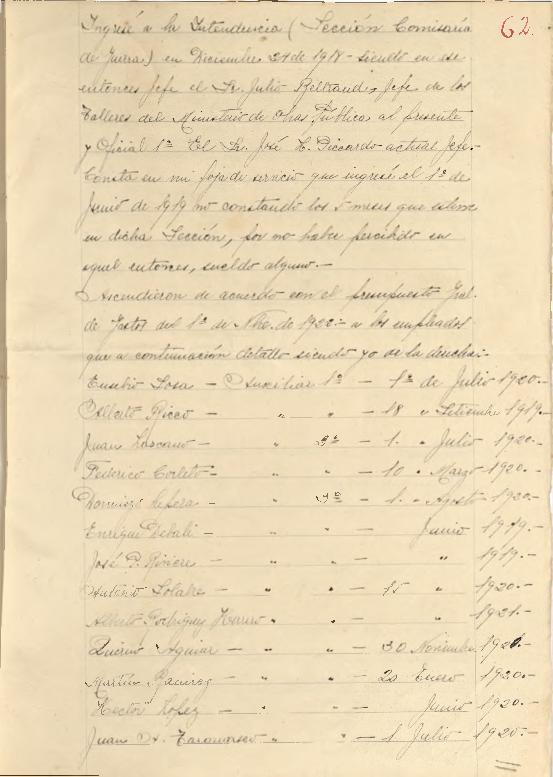 62.
Ingresé a la Intendencia (Sección Comisaría
de Guerra) en Diciembre 24 de 1918 - siendo en ese
entonces Jefe el Sr. Julio Beltrand, Jefe de los
Talleres del Ministerio de Obras Públicas al presente
y Oficial 1º El Sr. José C. Piccardo actual Jefe.-
Consta en mi foja de servicio que ingresé el 1º de
Junio de 1919 no constando los 5 meses que estuve
en dicha Sección, por no haber percibido en
aquel entonces, sueldo alguno.-
Ascendieron de acuerdo con el presupuesto Gral.
de Gastos del 1º de Nbre. de 1922.- a los empleados
que a continuación detallo siendo yo de la derecha:-
Eusebio Sosa - Auxiliar 1º - 1º de Julio 1920.-
Alberto Ricco - " " - 18 " Setiembre 1919.-
Juan Lascano - " 3º - 1. " Julio 1920.-
Federico Corleto - " " - 10 " Marzo 1920.-
Domingo - " 7º - 1. " Agosto 1920.-
Enrique - " " - Junio 1919.-
José P. Riviere - " " - " 1919.-
Antonio Solabre - " " - 15 " 1920.-
Alberto Rodriguez Herrero " " - " 1921.-
Quirno Aguiar - " " - 30 Noviembre 1920.-
Martin Ramirez - " " - 20 Enero 1920.-
Hector Lopez - " " - Junio 1920.-
Juan A. " " - 1 Julio 1920.-